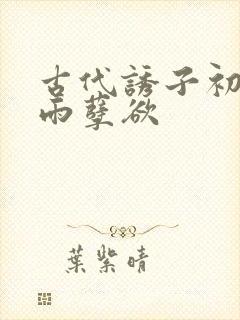 古代誘子初
雨孽欲
葉紫晴